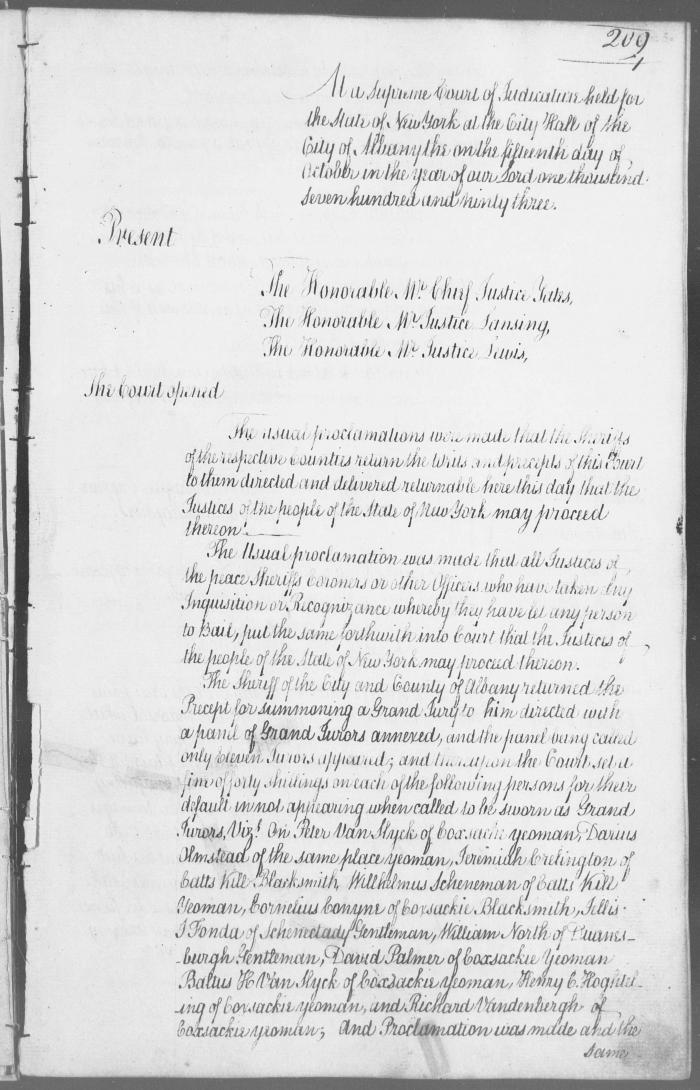 209
At a Supreme Court of Judicature held for
the State of New York at the City Hall of the
City of Albany the on the fifteenth day of
October in the Year of our Lord one thousand
seven hundred and ninty three.
Present
The Honorable Mr. Chief Justice Yates,
The Honorable Mr. Justice Lansing,
The Honorable Mr. Justice Lewis,
The Court opened
The usual proclamations were made that the Sheriffs
of the respective Counties return the writs and precepts of this Court
to them directed and delivered returnable here this day that the
Justices of the people of the State of New York may proceed
thereon.
The Usual proclamation was made that all Justices of
the peace Sheriffs Coroners or other Officers who have taken any
Inquisition or Recognizance whereby they have let any person
to Bail, put the same forthwith into Court that the Justices of
the people of the State of New York may proceed thereon.
The Sheriff of the City and County of Albany returned the
Precept for summoning a Grand Jury to him directed with
a panel of Grand Jurors annexed, and the panel being called
only Eleven Jurors appeared; and thereupon the Court set a
fine of forty shillings on each of the following persons for their
default in not appearing when called to be sworn as Grand
Jurors, Vizt. On Peter Van Slyck of Coxsackie yeoman, Darius
Olmstead of the same place yeoman, Jeremiah Crelington of
Catts Kill Blacksmith, Wilhelmus Scheneman of Catts Kill
Yeoman, Cornelius Conyne of Coxsackie Blacksmith, Jellis
J Fonda of Schenectady Gentleman, William North of Duanes-
burgh Gentleman, David Palmer of Coxsackie Yeoman
Baltus H Van Slyck of Coxsackie yeoman, Henry C. Hoghtel-
ing of Coxsackie yeoman, and Richard Vandenbergh of
Coxsackie yeoman; and Proclamation was made and the
same